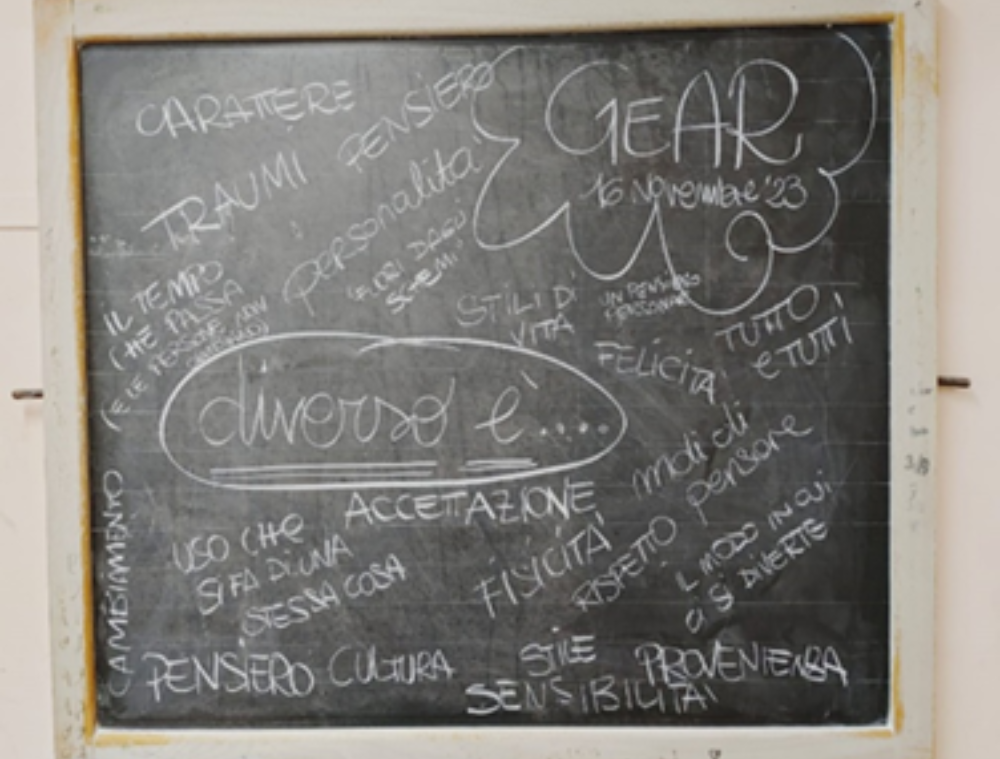 CARATTERE
PENSIERO
GEAR
16 Novembre '23
TRAUMI
personalità
FUORI DAGLI
SCHEMI
IL TEMPO
CHE PASSA
(E LE PERSONE NON
STILI DI
VITA
UN PENSIERO
PERSONALE
TUTTO
e TUTTI
FELICITÀ
diverso è....
modi di
pensare
ACCETTAZIONE
CAMBIAMENTO
USO CHe
SI FA DI UNA
STESSA COSA
FISICITÀ
RISPETTO
IL MODO IN CUI
CI SI DIVERTE
PENSIERO
CULTURA
STILE
SENSIBILITÀ
PROVENIENZA